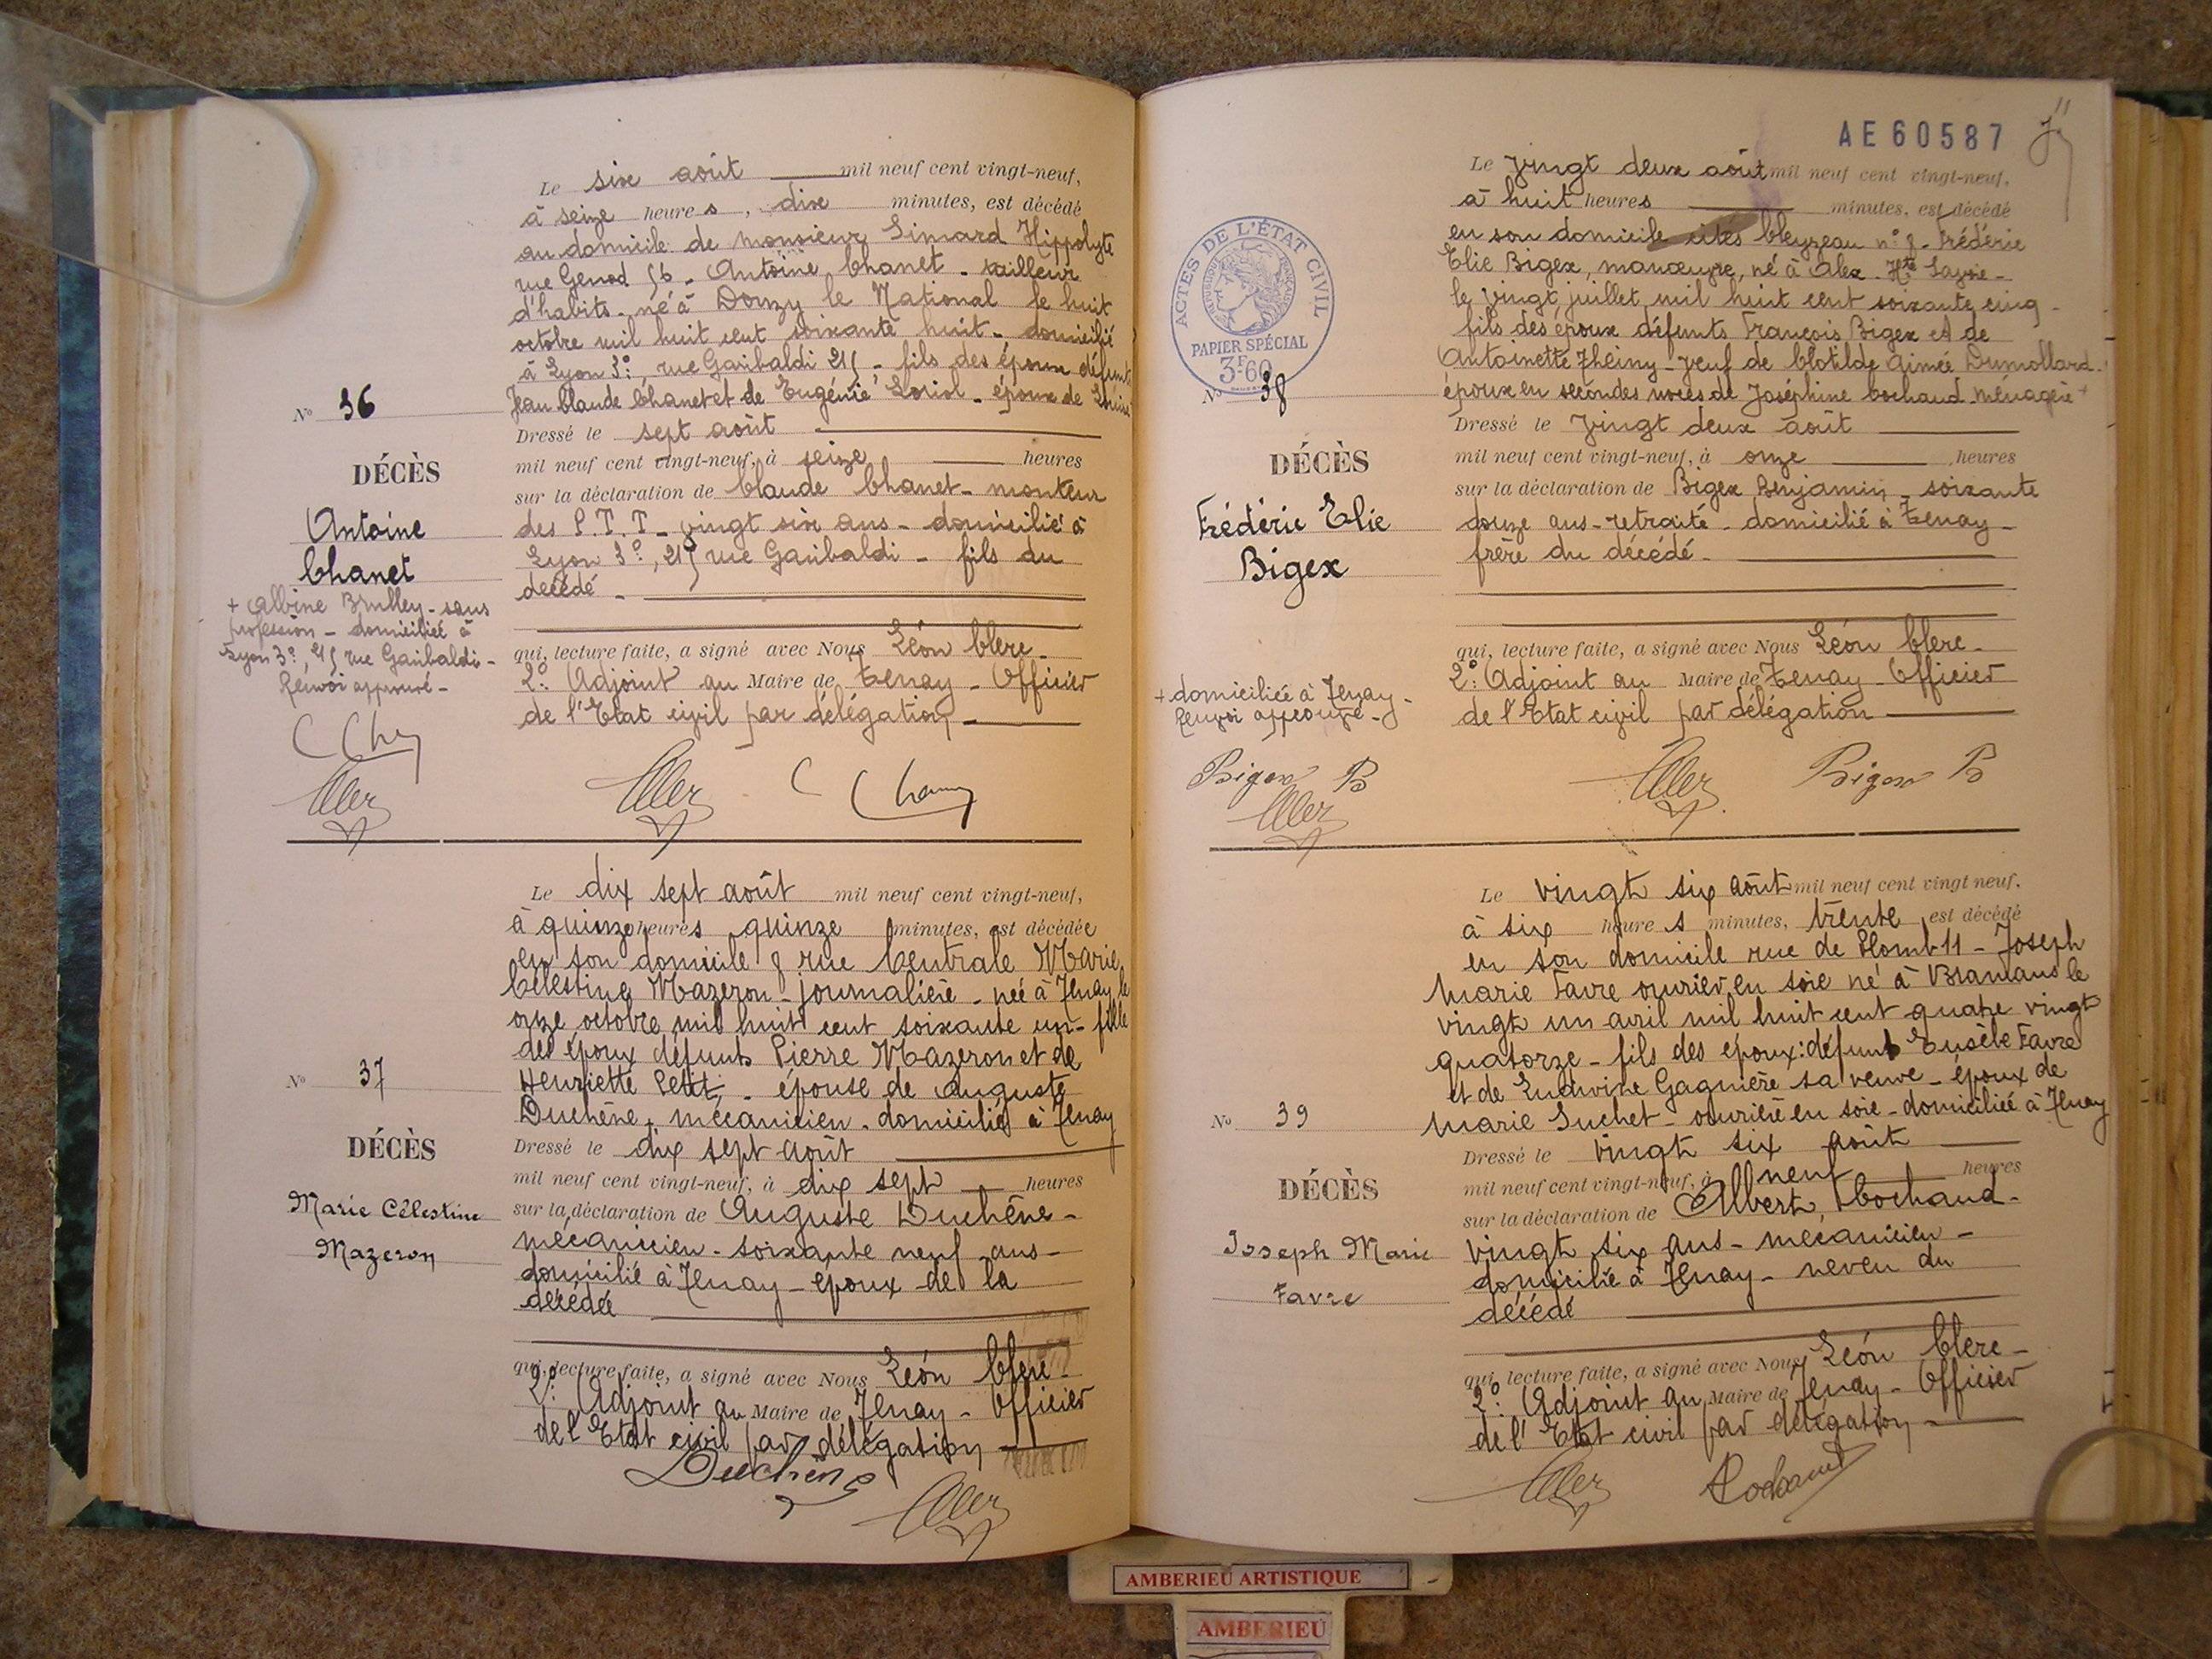 Le six août mil neuf cent vingt-neuf,
à seize heures, dix minutes, est décédé
au domicile de monsieur Simard Hippolyte
rue Genod 56 - Antoine Chanet - tailleur
d'habits - né à Donzy le National le huit
octobre mil huit cent soixante huit - domicilié
à Lyon 3e, rue Garibaldi 215 - fils des époux défunts
Jean Claude Chanet et de Eugénie Loriol - époux de
Nº 36
DÉCÈS
Antoine
Chanet
+ Albine Brulley - sans
profession - domiciliée à
Lyon 3e, 215 rue Garibaldi -
Renvoi approuvé -
Dressé le sept août
mil neuf cent vingt-neuf, à seize heures
sur la déclaration de Claude Chanet - monteur
des P.T.T - vingt six ans - domicilié à
Lyon 3e, 215 rue Garibaldi - fils du
décédé -
qui, lecture faite, a signé avec Nous Léon Clerc -
2e Adjoint au Maire de Tenay - Officier
de l'Etat civil par délégation -
Le dix sept août mil neuf cent vingt-neuf,
à quinze heures quinze minutes, est décédée
en son domicile 8 rue Centrale Marie
Célestine Mazeron - journalière - née à Tenay le
onze octobre mil huit cent soixante un - fille
des époux défunts Pierre Mazeron et de
Henriette Petit - épouse de Auguste
Duchêne, mécanicien - domicilié à Tenay
Nº 37
DÉCÈS
Marie Célestine
Mazeron
Dressé le dix sept août
mil neuf cent vingt-neuf, à dix sept heures
sur la déclaration de Auguste Duchêne -
mécanicien - soixante neuf ans -
domicilié à Tenay - époux de la
décédée
qui, lecture faite, a signé avec Nous Léon Clerc -
2e Adjoint au Maire de Tenay - Officier
de l'Etat civil par délégation
Duchêne
AE 60587
Le vingt deux août mil neuf cent vingt-neuf,
à huit heures minutes, est décédé
en son domicile cités Cleyzeau n° 8 - Frédéric
Elie Bigex, manoeuvre, né à Alex - Hte Savoie -
le vingt juillet mil huit cent soixante cinq -
fils des époux défunts François Bigex et de
Antoinette Theiny - veuf de Clotilde Aimée Dumollard -
époux en secondes noces de Joséphine Cochaud ménagère +
ACTES DE L'ÉTAT CIVIL
RÉPUBLIQUE FRANÇAISE
PAPIER SPÉCIAL
3F.60
Nº 38
DÉCÈS
Frédéric Elie
Bigex
+ domiciliée à Tenay -
Renvoi approuvé -
Bigex B
Dressé le vingt deux août
mil neuf cent vingt-neuf, à onze heures
sur la déclaration de Bigex Benjamin - soixante
douze ans - retraité - domicilié à Tenay -
frère du décédé -
qui, lecture faite, a signé avec Nous Léon Clerc -
2e Adjoint au Maire de Tenay - Officier
de l'Etat civil par délégation
Bigex B
Le vingt six août mil neuf cent vingt neuf,
à six heures minutes, trente est décédé
en son domicile rue de Plomb 11 - Joseph
Marie Favre ouvrier en soie né à Bramans le
vingt un avril mil huit cent quatre vingt
quatorze - fils des époux : défunt Eusèbe Favre
et de Ludivine Gagnière sa veuve - époux de
Marie Suchet - ouvrière en soie - domiciliée à Tenay
Nº 39
DÉCÈS
Joseph Marie
Favre
Dressé le vingt six août
mil neuf cent vingt-neuf, à neuf heures
sur la déclaration de Albert Cochaud -
vingt six ans - mécanicien -
domicilié à Tenay - neveu du
décédé
qui, lecture faite, a signé avec Nous Léon Clerc -
2e Adjoint au Maire de Tenay - Officier
de l'Etat civil par délégation -
Cochaud
AMBERIEU ARTISTIQUE
AMBERIEU